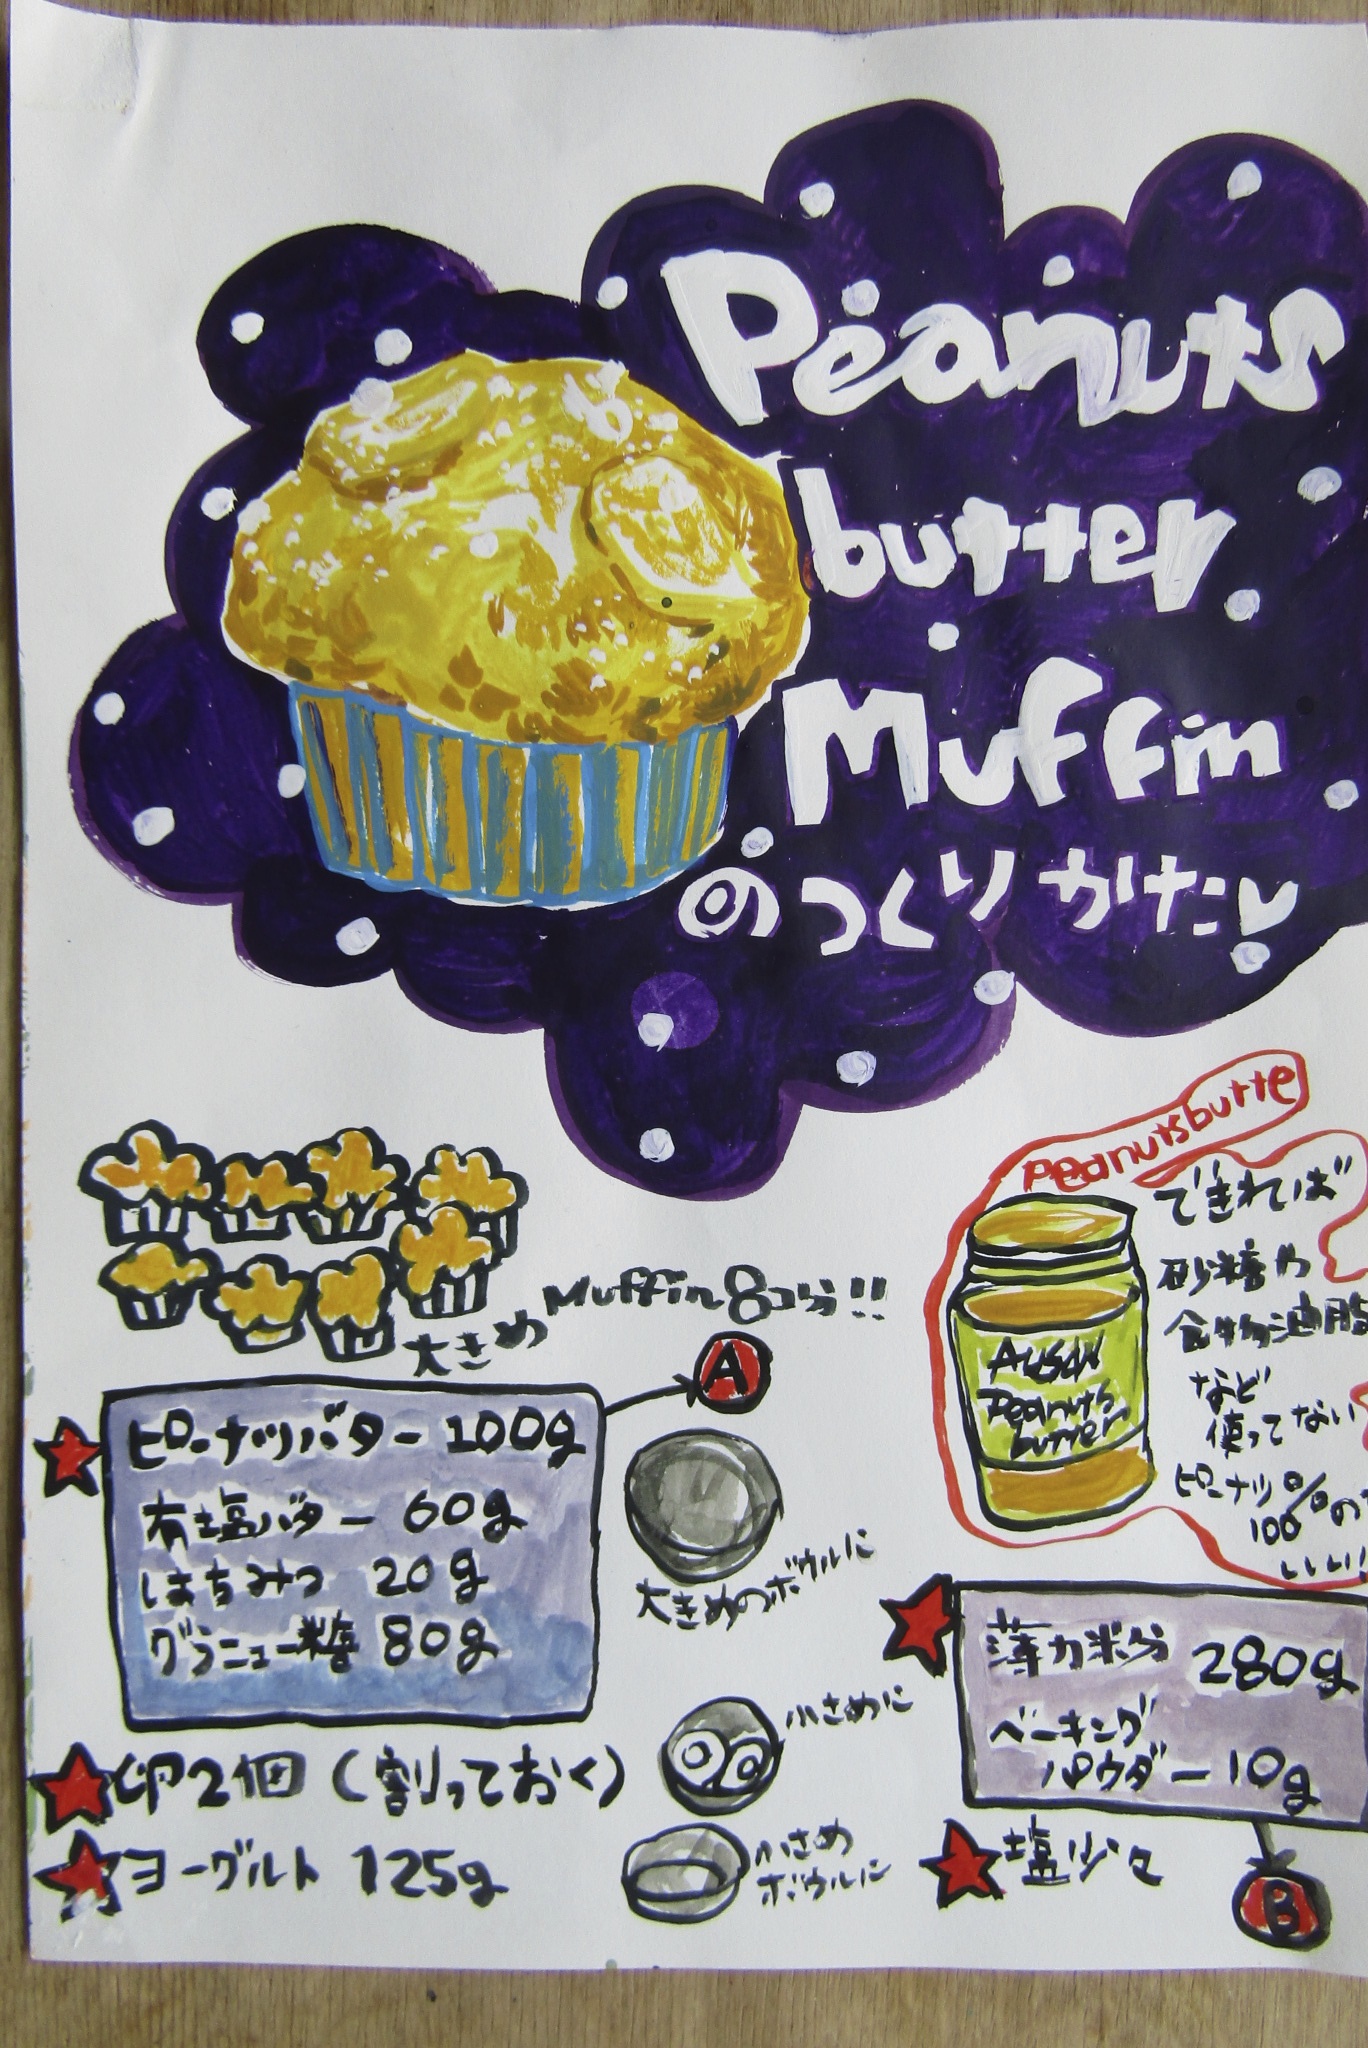 Peanuts
butter
Muffin
のつくりかた
大きめ Muffin 8コ分!!
A
ピーナツバター 100g
有塩バター 60g
はちみつ 20g
グラニュー糖 80g
大きめのボウルに
卵2個(割っておく)
小さめに
ヨーグルト 125g
小さめ
ボウルに
Peanutsbutte
できれば
砂糖や
食物油脂
など
使ってない
ピーナツ100%の
いい!!
Peanuts
butter
薄力粉 280g
ベーキング
パウダー 10g
塩少々
B